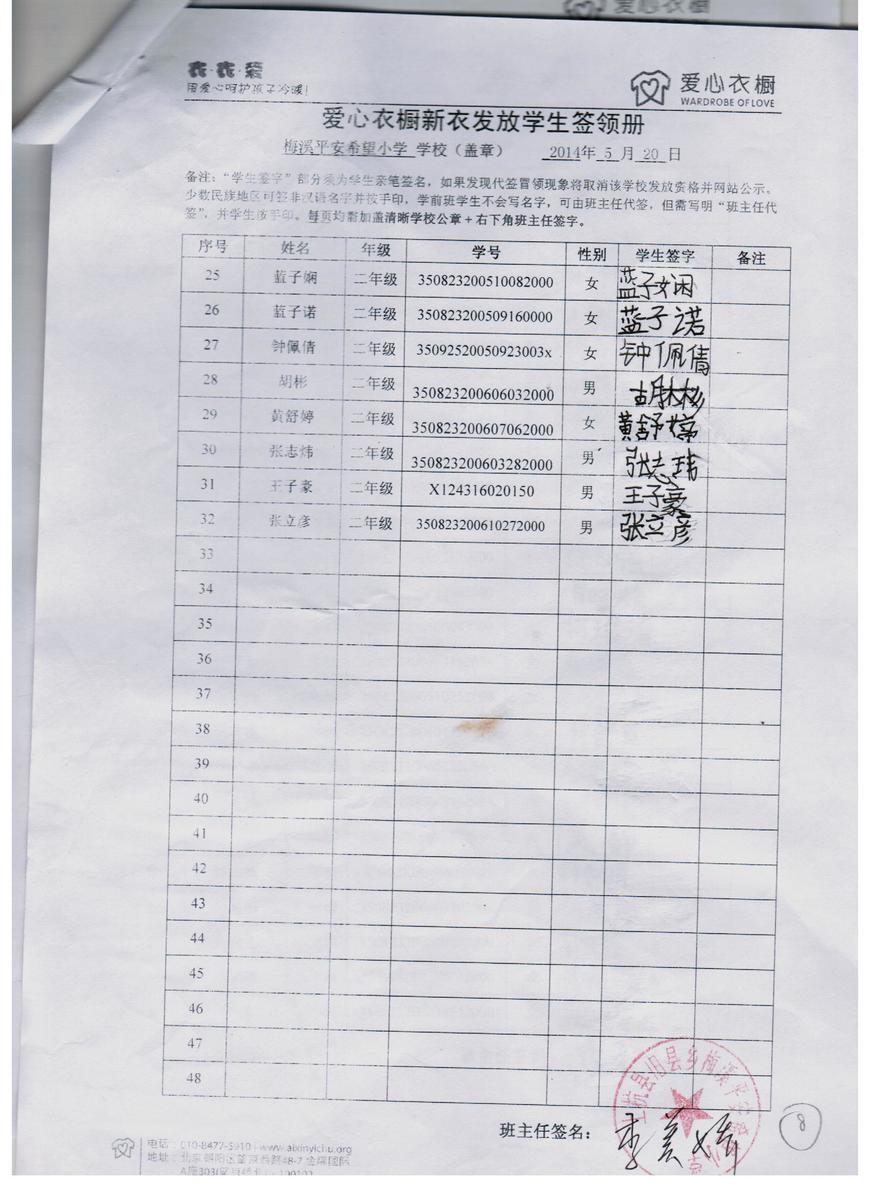 爱心衣橱
衣·衣·爱
用爱心呵护孩子冷暖！
爱心衣橱
WARDROBE OF LOVE
爱心衣橱新衣发放学生签领册
梅溪平安希望小学 学校（盖章） 2014年 5 月 20 日
备注：“学生签字”部分须为学生亲笔签名，如果发现代签冒领现象将取消该学校发放资格并网站公示。
少数民族地区可签非汉语名字并按手印，学前班学生不会写名字，可由班主任代签，但需写明“班主任代
签”，并学生按手印。每页均需加盖清晰学校公章+右下角班主任签字。
序号 姓名 年级 学号 性别 学生签字 备注
25 蓝子娴 二年级 350823200510082000 女 蓝子娴
26 蓝子诺 二年级 350823200509160000 女 蓝子诺
27 钟佩倩 二年级 35092520050923003x 女 钟佩倩
28 胡彬 二年级 350823200606032000 男 胡彬
29 黄舒婷 二年级 350823200607062000 女 黄舒婷
30 张志炜 二年级 350823200603282000 男 张志玮
31 王子豪 二年级 X124316020150 男 王子豪
32 张立彦 二年级 350823200610272000 男 张立彦
33
34
35
36
37
38
39
40
41
42
43
44
45
46
47
48
上杭县旧县乡梅溪平安希望小学
班主任签名： 李美娟
8
电话：010-8472-5910 | www.aixinyichu.org
地址：北京朝阳区 48-7 金瑞国际
A座303